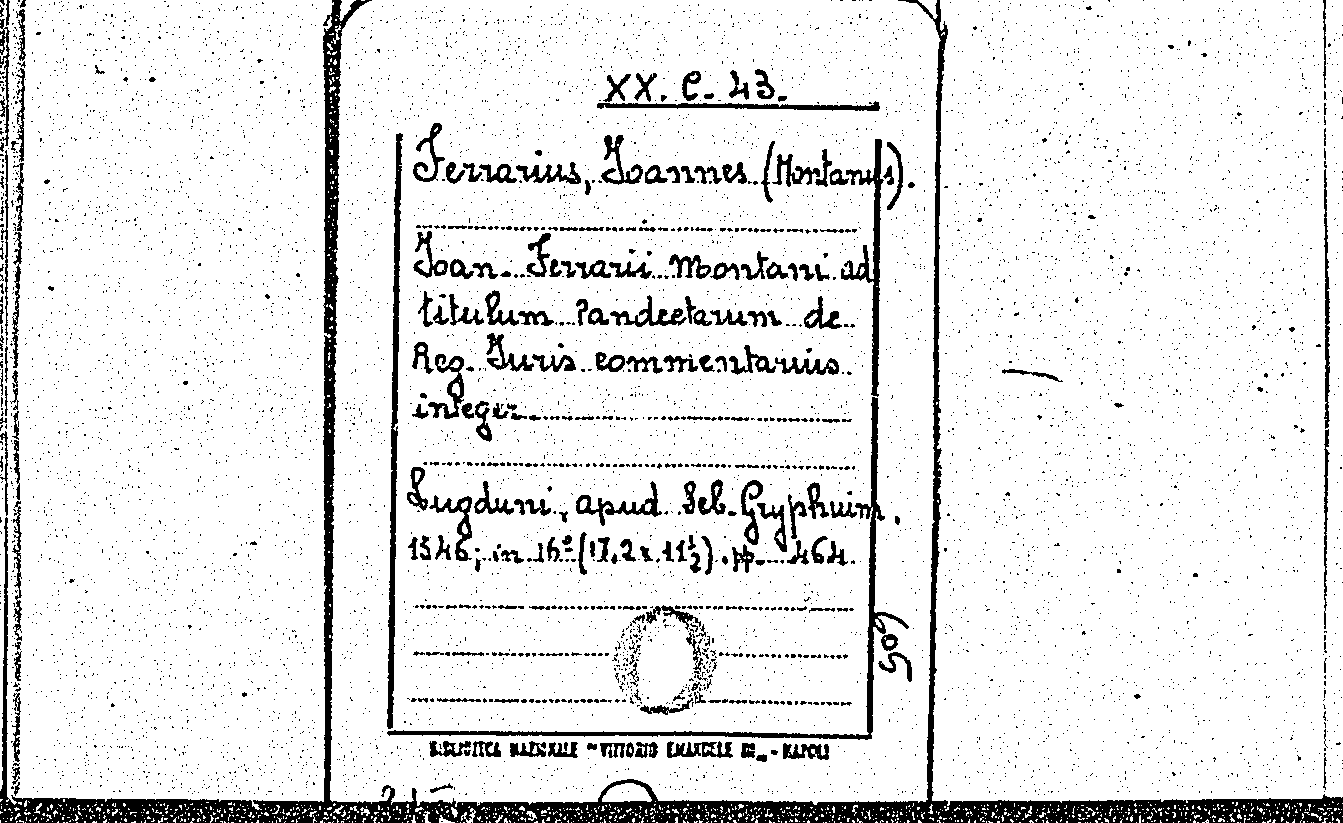 XX. C. 43.
Ferrarius, Joannes (Montanus).
Joan. Ferrarii Montani ad
titulum Pandectarum de
Reg. Juris commentarius
integer.
Lugduni, apud Seb. Gryphuim.
1546; in 16º (17,2 x 11½). pp. 464.
509
BIBLIOTECA NAZIONALE "VITTORIO EMANUELE III" - NAPOLI